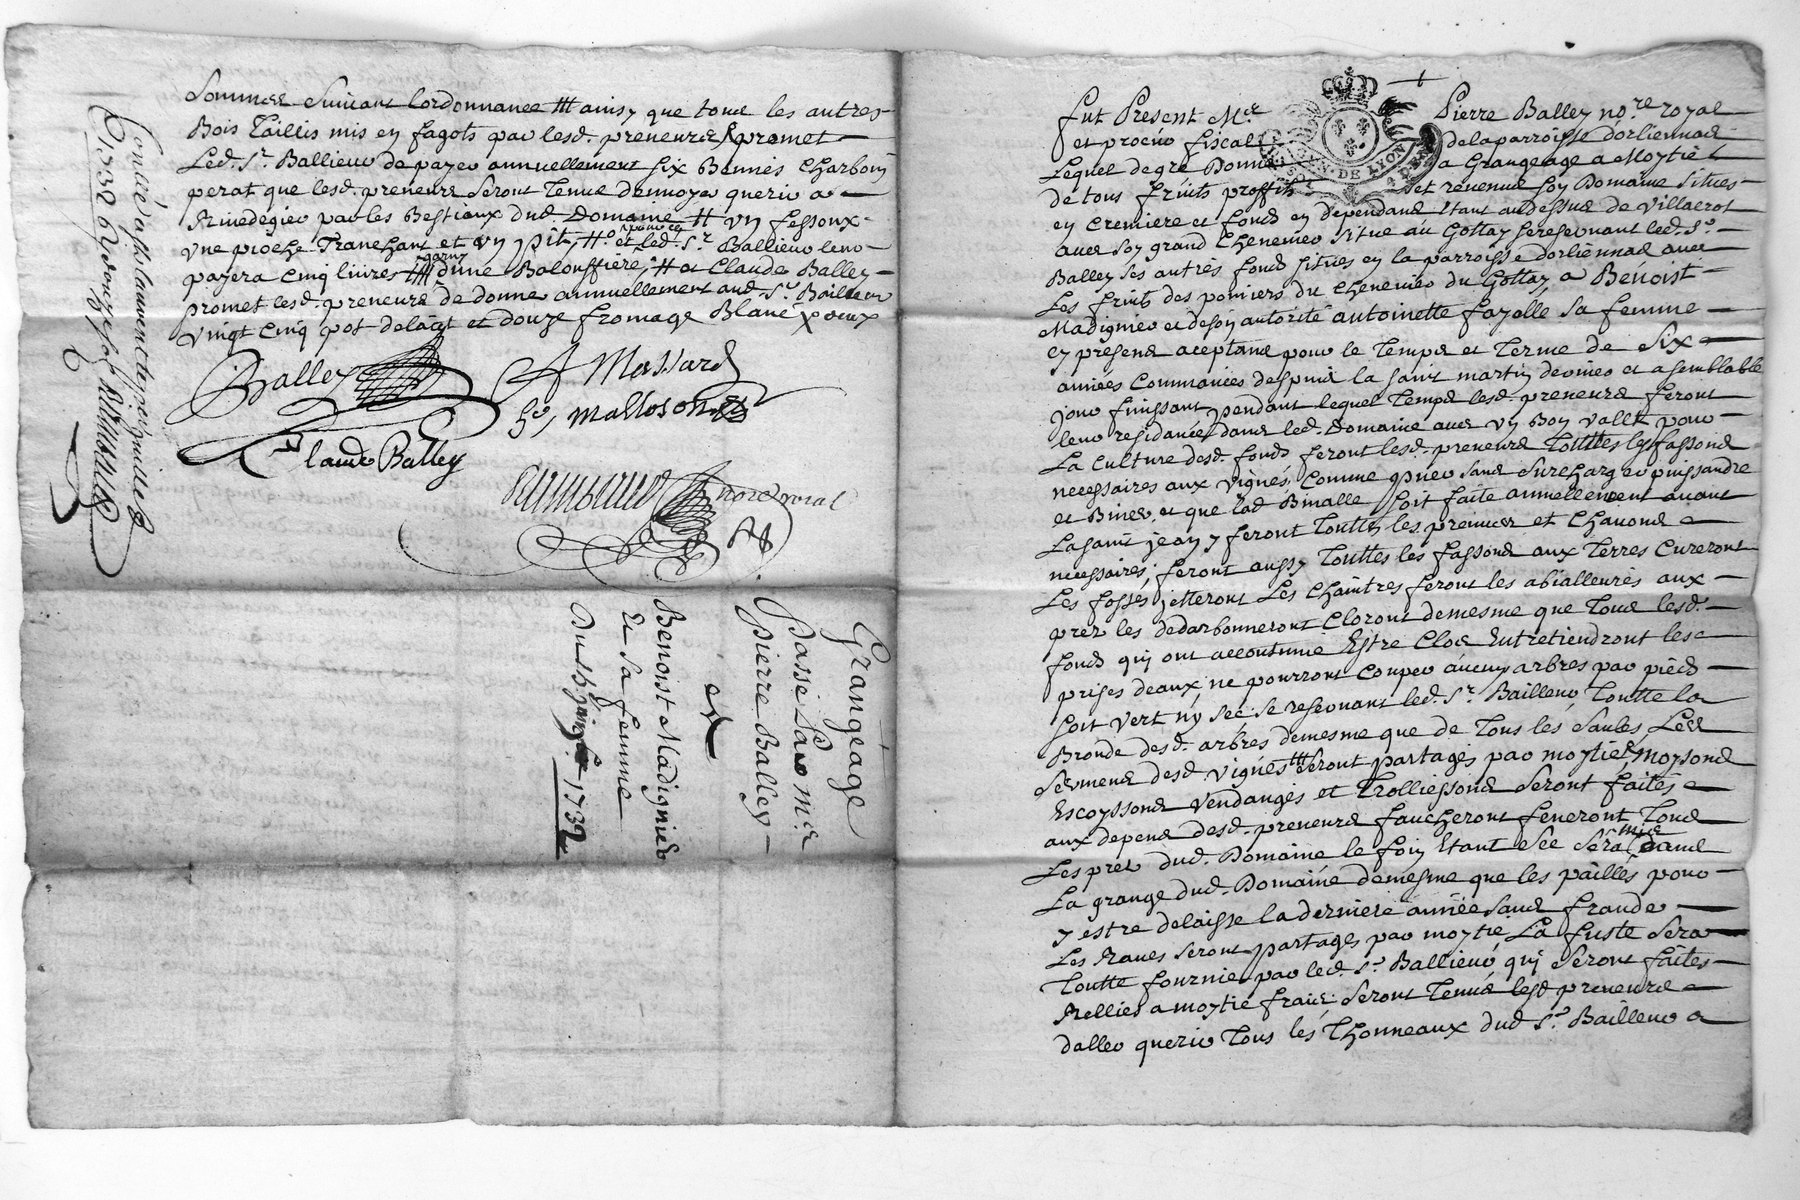 Fut Present Mre Pierre Balley nore royal
et procur fiscal de la parroisse dorliennas
Lequel de gre Donne a Grangeage a Moytié
de tous fruits proffits et revenus son Domaine situes
en Cremiere et fonds en dependans Etant audessus de Villaerot
avec son grand Chenevier situe au Gottay se reservant led. Sr
Balley ses autres fonds situes en la parroisse dorliennas avec
Les fruits des pomiers du Chenevier du Gottay a Benoist
Madignier et de son autorité antoinette fayelle sa femme
cy presens aceptans pour le Temps et Terme de Six
années Commancées despuis la saint martin dernier et a semblable
jour finissant pendant lequel Temps lesd. preneurs feront
leur residance dans led. Domaine avec un Bon vallet pour
La Culture desd. fonds feront lesd. preneurs Touttes les fassons
necessaires aux vignes, Comme
et Biner, et que lad Binalle soit faite annuellement avant
La saint jean y feront Touttes les preuves et Chavons
necessaires, feront aussy Touttes les fassons aux Terres Cureront
Les fosses jetteront Les Chaintres feront les abialleures aux
prez les dedarbonneront Cloront demesme que Tous lesd.
fonds qui ont accoutumé Estre Clos Entretiendront les
prises deaux, ne pourront Couper aucuns arbres par pieds
soit vert ny sec se reservant led. Sr Ballieu Toutte la
Bronde desd. arbres demesme que de Tous les Saules Les
Sermens desd vignes seront partagés par moytié, moyssons
Escoyssons Vendanges et Trolliessons seront faites
aux depens desd. preneurs faucheront feneront Tous
Les prez dud. Domaine le foin Etant sec sera mis dans
La grange dud. Domaine demesme que les pailles pour
y estre delaisse la derniere année sans fraude
Les Raves seront partages par moytié La fuste sera
Toutte fournie par led. Sr Ballieu qui seront faites
Rellies a moytié frais seront Tenus lesd preneurs
daller querir Tous les Thonneaux dud Sr Ballieu a
GEN. DE LYON
Sommes suivant lordonnance ainsy que tous les autres
Bois Taillis mis en fagots par lesd. preneurs promet
Led. Sr Ballieu de payer annuellement six Bennes Charbon
perat que lesd. preneurs seront Tenus denvoyer querir a
Rivedegier par les Bestiaux dud. Domaine un fessoux
une pioche Tranchant et un pit, et Led. Sr Ballieu leur
payera Cinq livres dune Balouffiere, et Claude Balley
promet lesd. preneurs de donne annuellement aud. Sr Ballieu
vingt Cinq pot de lait et douze fromage Blanc
Balley
A Massard
Malloson
Claude Balley
nore royal
Controlé a St laurent le juillet
1732
Grangéage
Passé Par Mre
Pierre Balley
et
Benoist Madignier
et sa femme
1732